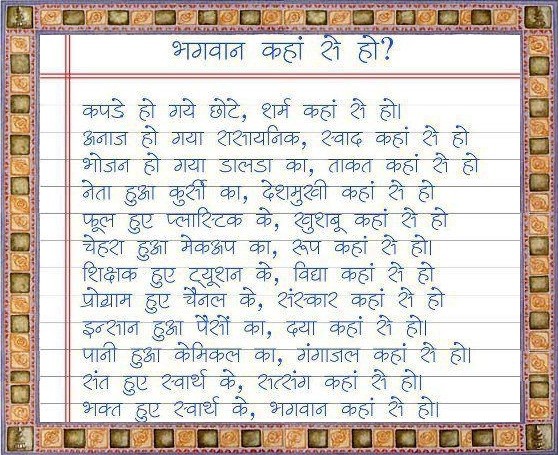 भगवान कहां से हो?
कपडे हो गये छोटे, शर्म कहां से हो।
अनाज हो गया रासायनिक, स्वाद कहां से हो
भोजन हो गया डालडा का, ताकत कहां से हो
नेता हुआ कुर्सी का, देशमुखी कहां से हो
फूल हुए प्लास्टिक के, खुशबू कहां से हो
चेहरा हुआ मेकअप का, रूप कहां से हो।
शिक्षक हुए ट्यूशन के, विद्या कहां से हो
प्रोग्राम हुए चैनल के, संस्कार कहां से हो
इन्सान हुआ पैसों का, दया कहां से हो।
पानी हुआ केमिकल का, गंगाजल कहां से हो।
संत हुए स्वार्थ के, सत्संग कहां से हो।
भक्त हुए स्वार्थ के, भगवान कहां से हो।